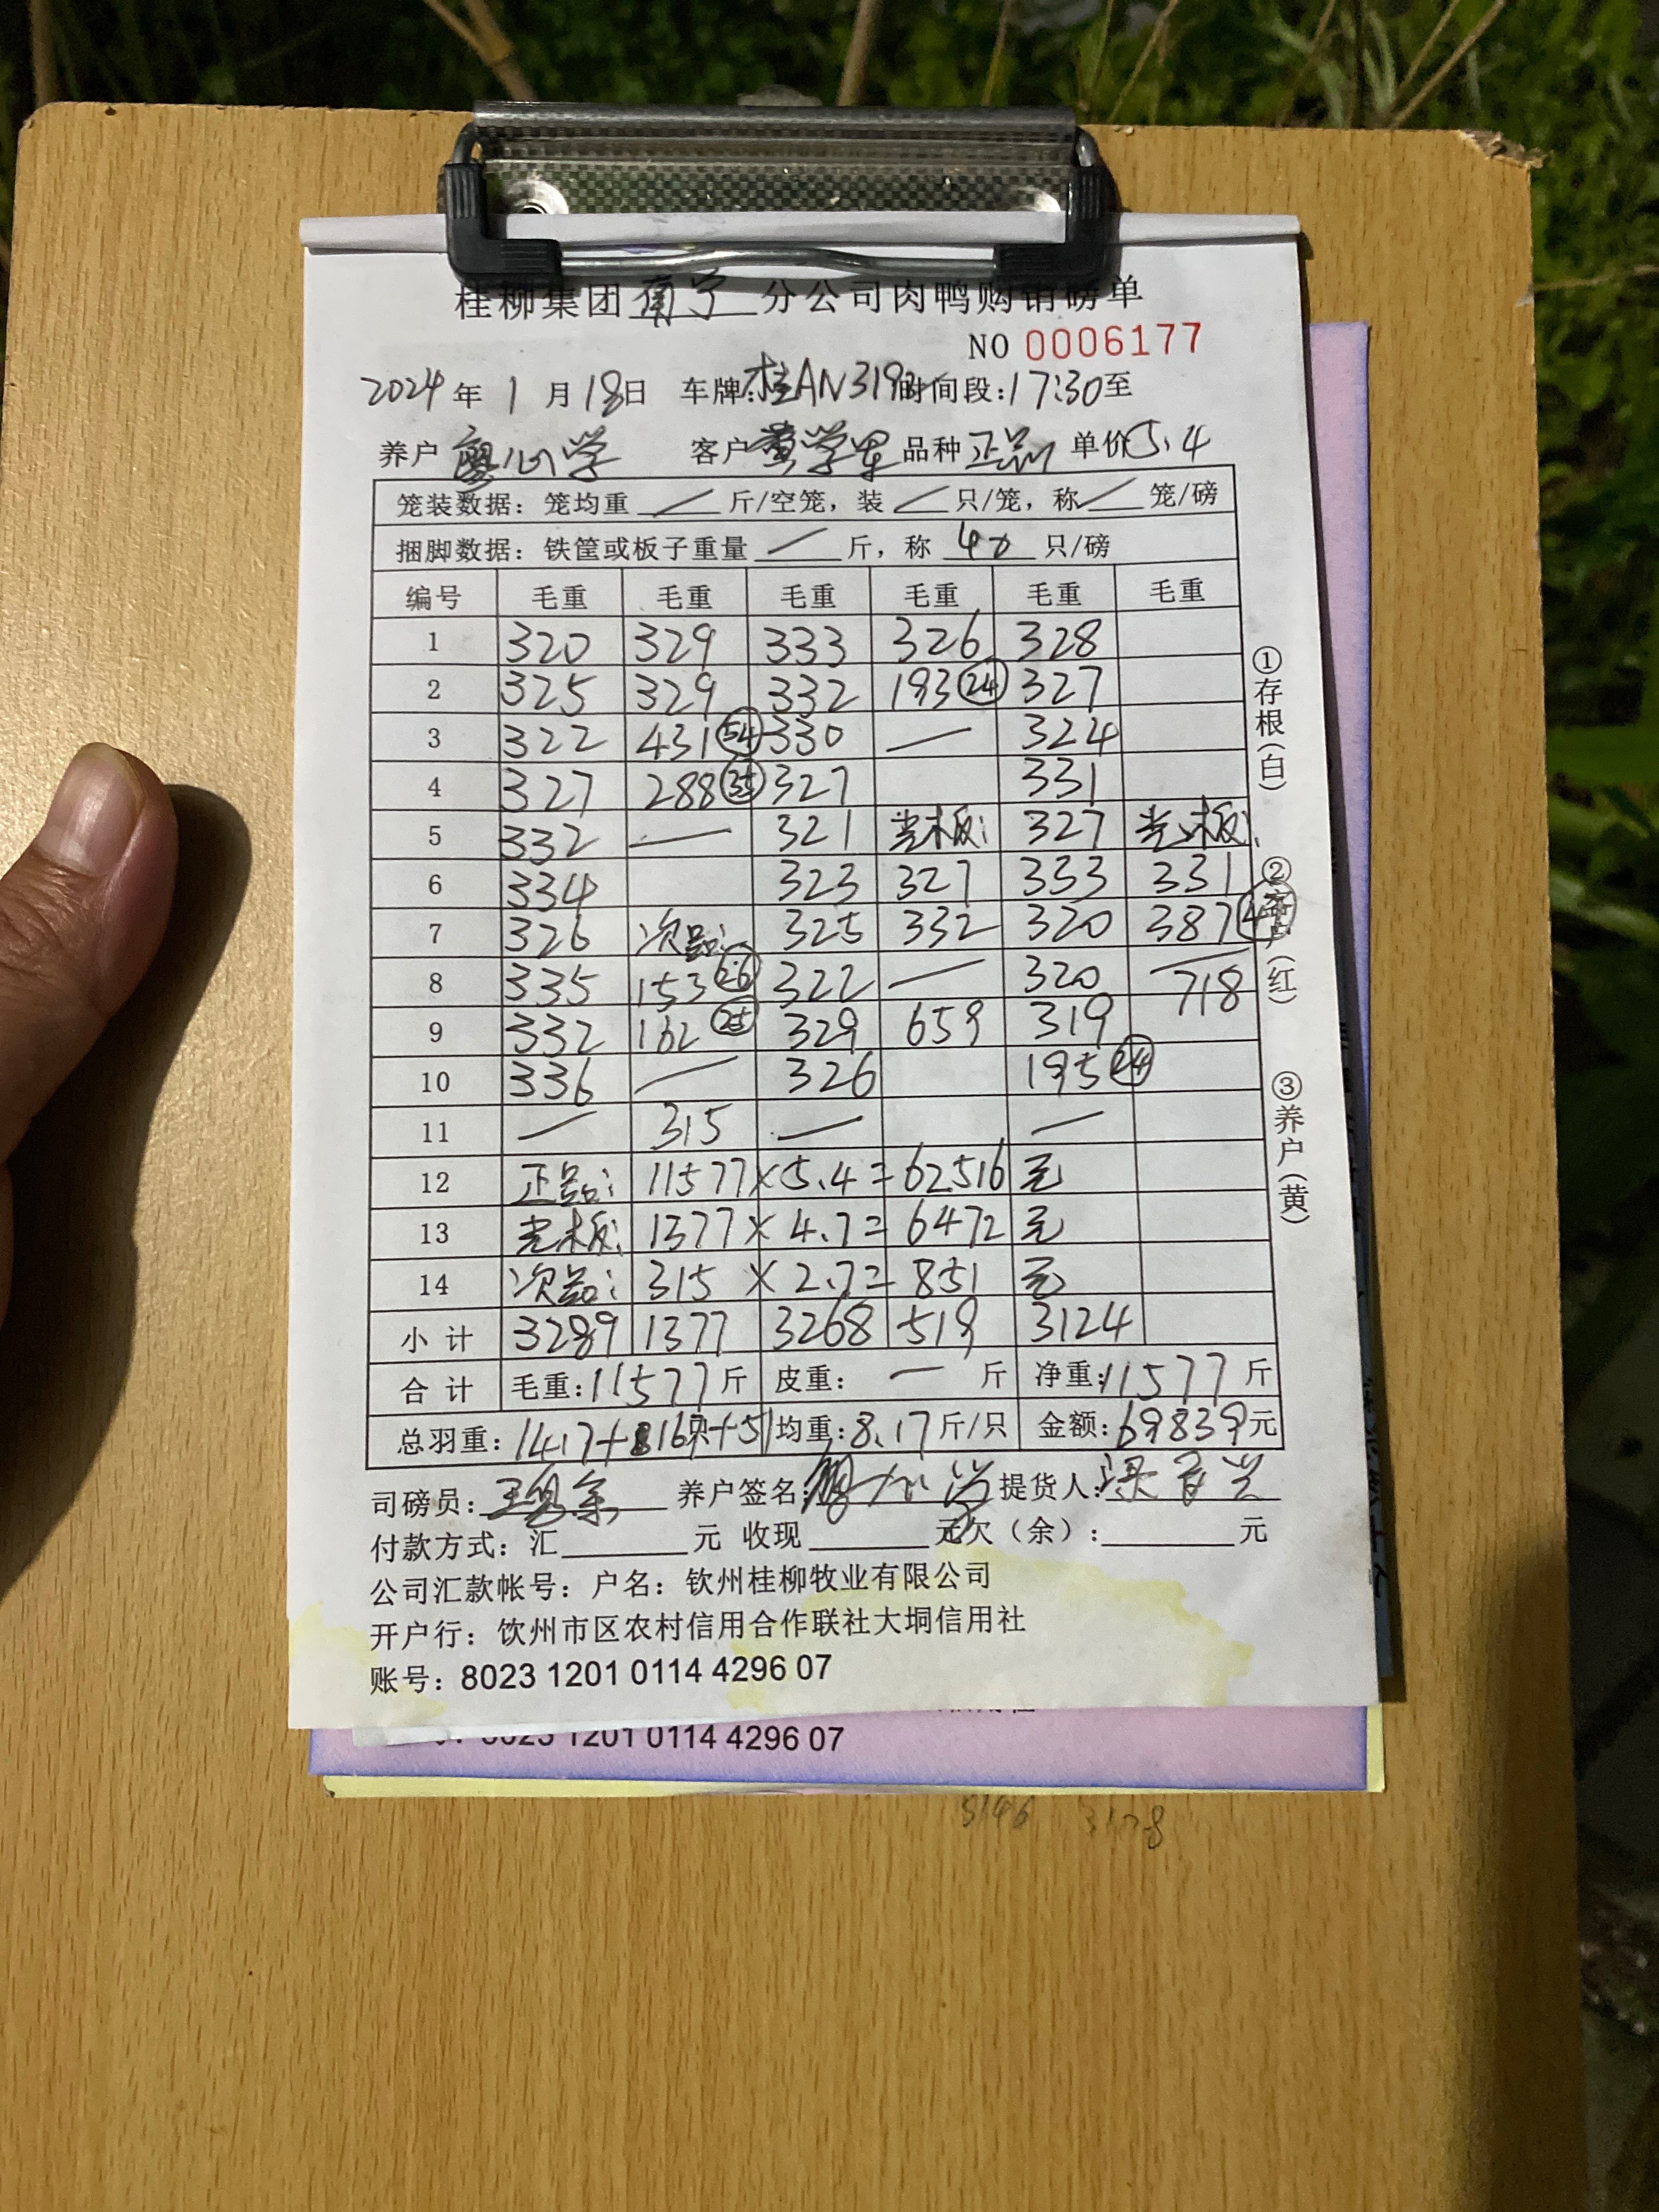 桂柳集团南宁分公司肉鸭购销磅单
NO 0006177
2024年1月18日 车牌:桂AN319 时间段:17:30至
养户 学 客户 黄学军 品种 正品 单价5.4
笼装数据: 笼均重 / 斤/空笼, 装 / 只/笼, 称 / 笼/磅
捆脚数据: 铁筐或板子重量 / 斤, 称 40 只/磅
编号 毛重 毛重 毛重 毛重 毛重 毛重
1 320 329 333 326 328
2 325 329 332 193 24 327
3 322 431 54 330 — 324
4 327 288 35 327 331
5 332 — 321 光板: 327 光板:
6 334 323 327 333 331
7 326 次品: 325 332 320 387
8 335 153 26 322 — 320 —
718
9 332 162 25 329 659 319
10 336 — 326 195 24
11 — 315 — —
12 正品: 11577×5.4=62516元
13 光板: 1377×4.7=6472元
14 次品: 315×2.7=851元
小计 3289 1377 3268 519 3124
合计 毛重:11577斤 皮重: — 斤 净重:11577斤
总羽重: 1417+ 16只+51 均重:8.17斤/只 金额:69839元
司磅员: 王 养户签名: 提货人:
付款方式: 汇 元 收现 元欠(余): 元
公司汇款帐号: 户名: 钦州桂柳牧业有限公司
开户行: 饮州市区农村信用合作联社大垌信用社
账号: 8023 1201 0114 4296 07
①存根(白)
②客户(红)
③养户(黄)
8023 1201 0114 4296 07
3178